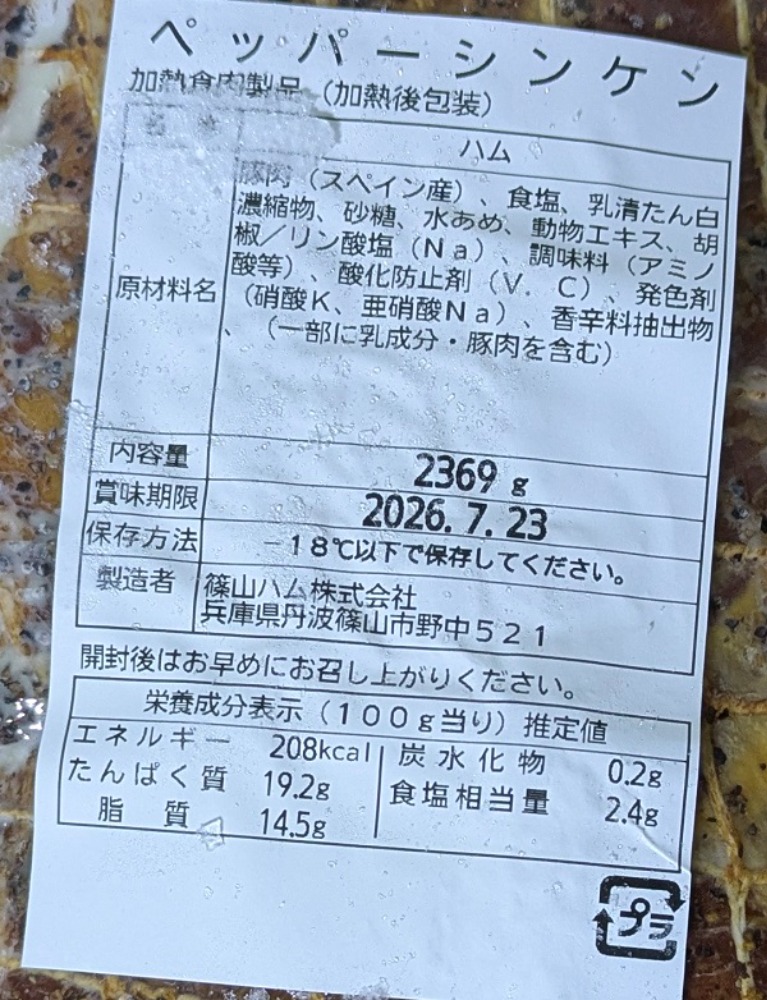 ペッパーシンケン
加熱食肉製品（加熱後包装）
名 称 ハム
原材料名
豚肉（スペイン産）、食塩、乳清たん白
濃縮物、砂糖、水あめ、動物エキス、胡
椒／リン酸塩（Ｎａ）、調味料（アミノ
酸等）、酸化防止剤（Ｖ．Ｃ）、発色剤
（硝酸Ｋ、亜硝酸Ｎａ）、香辛料抽出物
、（一部に乳成分・豚肉を含む）
内容量 2369 g
賞味期限 2026. 7. 23
保存方法 －１８℃以下で保存してください。
製造者 篠山ハム株式会社
兵庫県丹波篠山市野中５２１
開封後はお早めにお召し上がりください。
栄養成分表示（１００ｇ当り）推定値
エネルギー 208kcal 炭水化物 0.2g
たんぱく質 19.2g 食塩相当量 2.4g
脂 質 14.5g
プラ